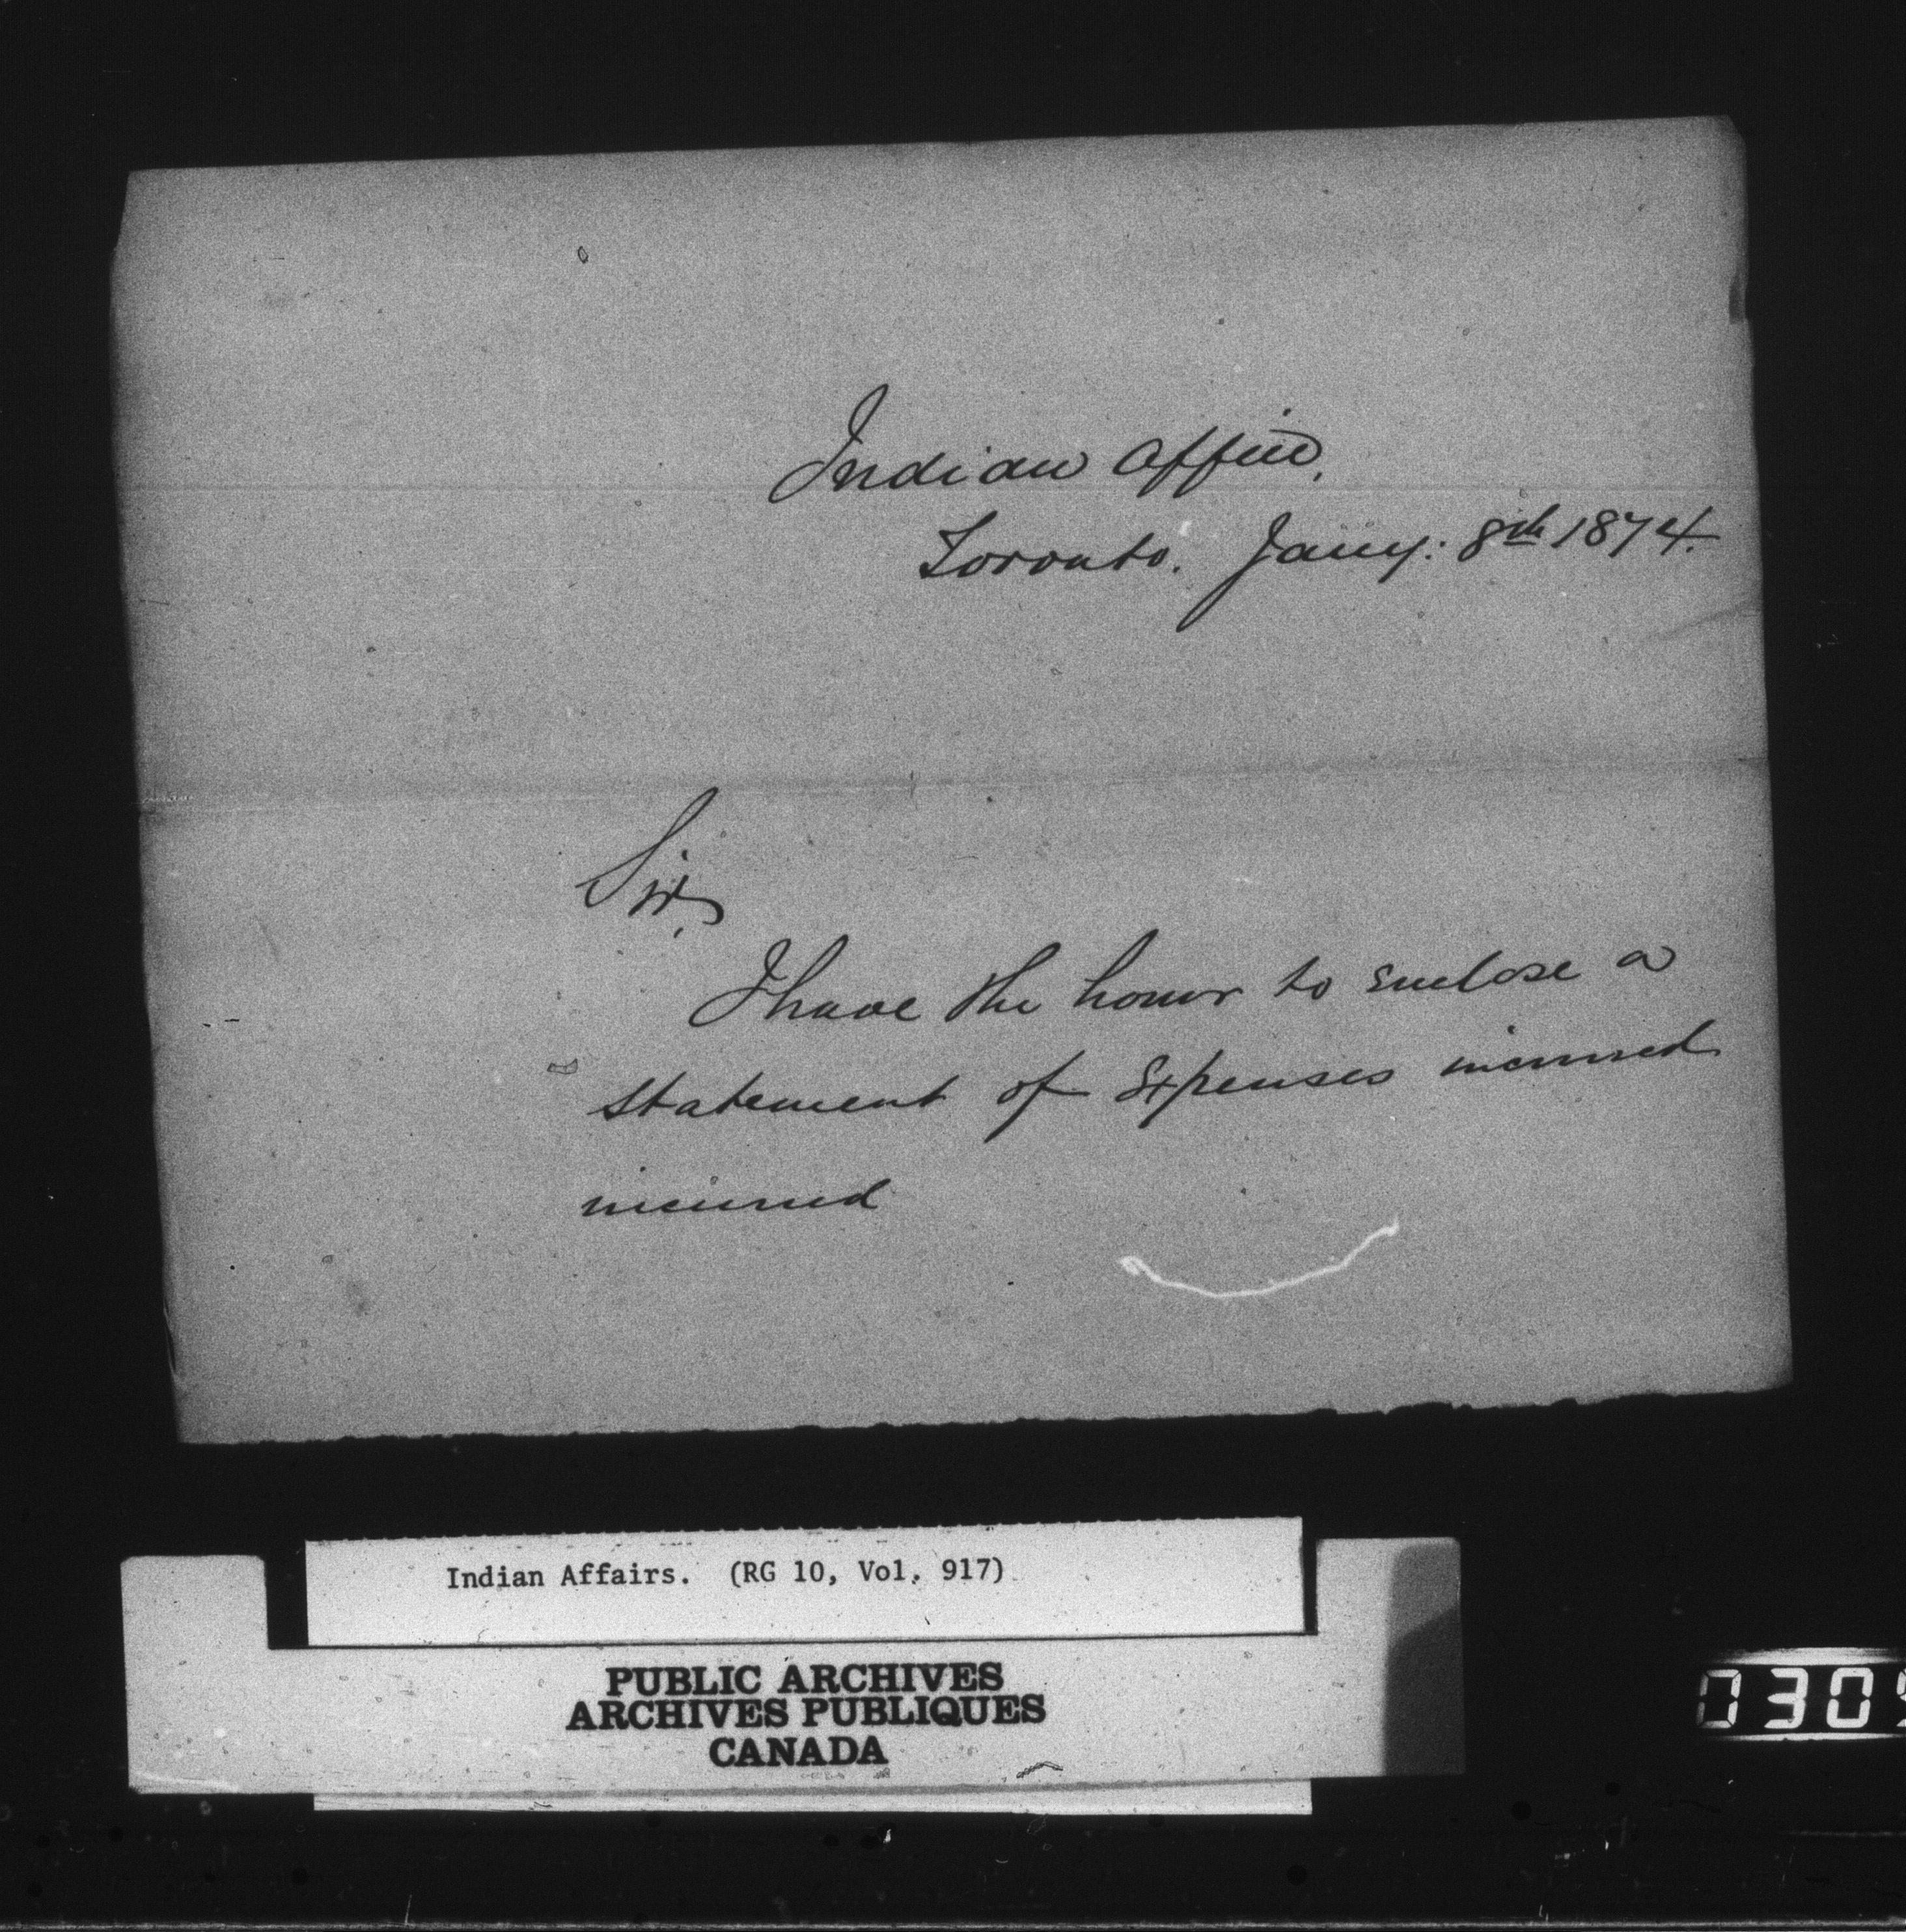 Indian Office,
Toronto. Jany: 8th 1874.
Sir,
I have the honor to enclose a
statement of Expenses incurred
incurred
Indian Affairs. (RG 10, Vol. 917)
PUBLIC ARCHIVES
ARCHIVES PUBLIQUES
CANADA